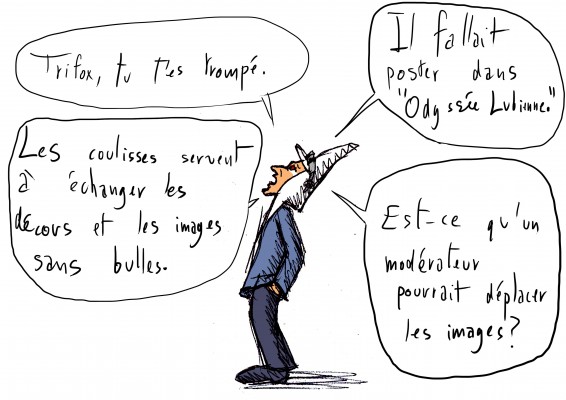 Trifox, tu t'es trompé.
Les coulisses servent
à échanger les
décors et les images
sans bulles.
Il fallait
poster dans
"Odyssée Lubienne."
Est-ce qu'un
modérateur
pourrait déplacer
les images?